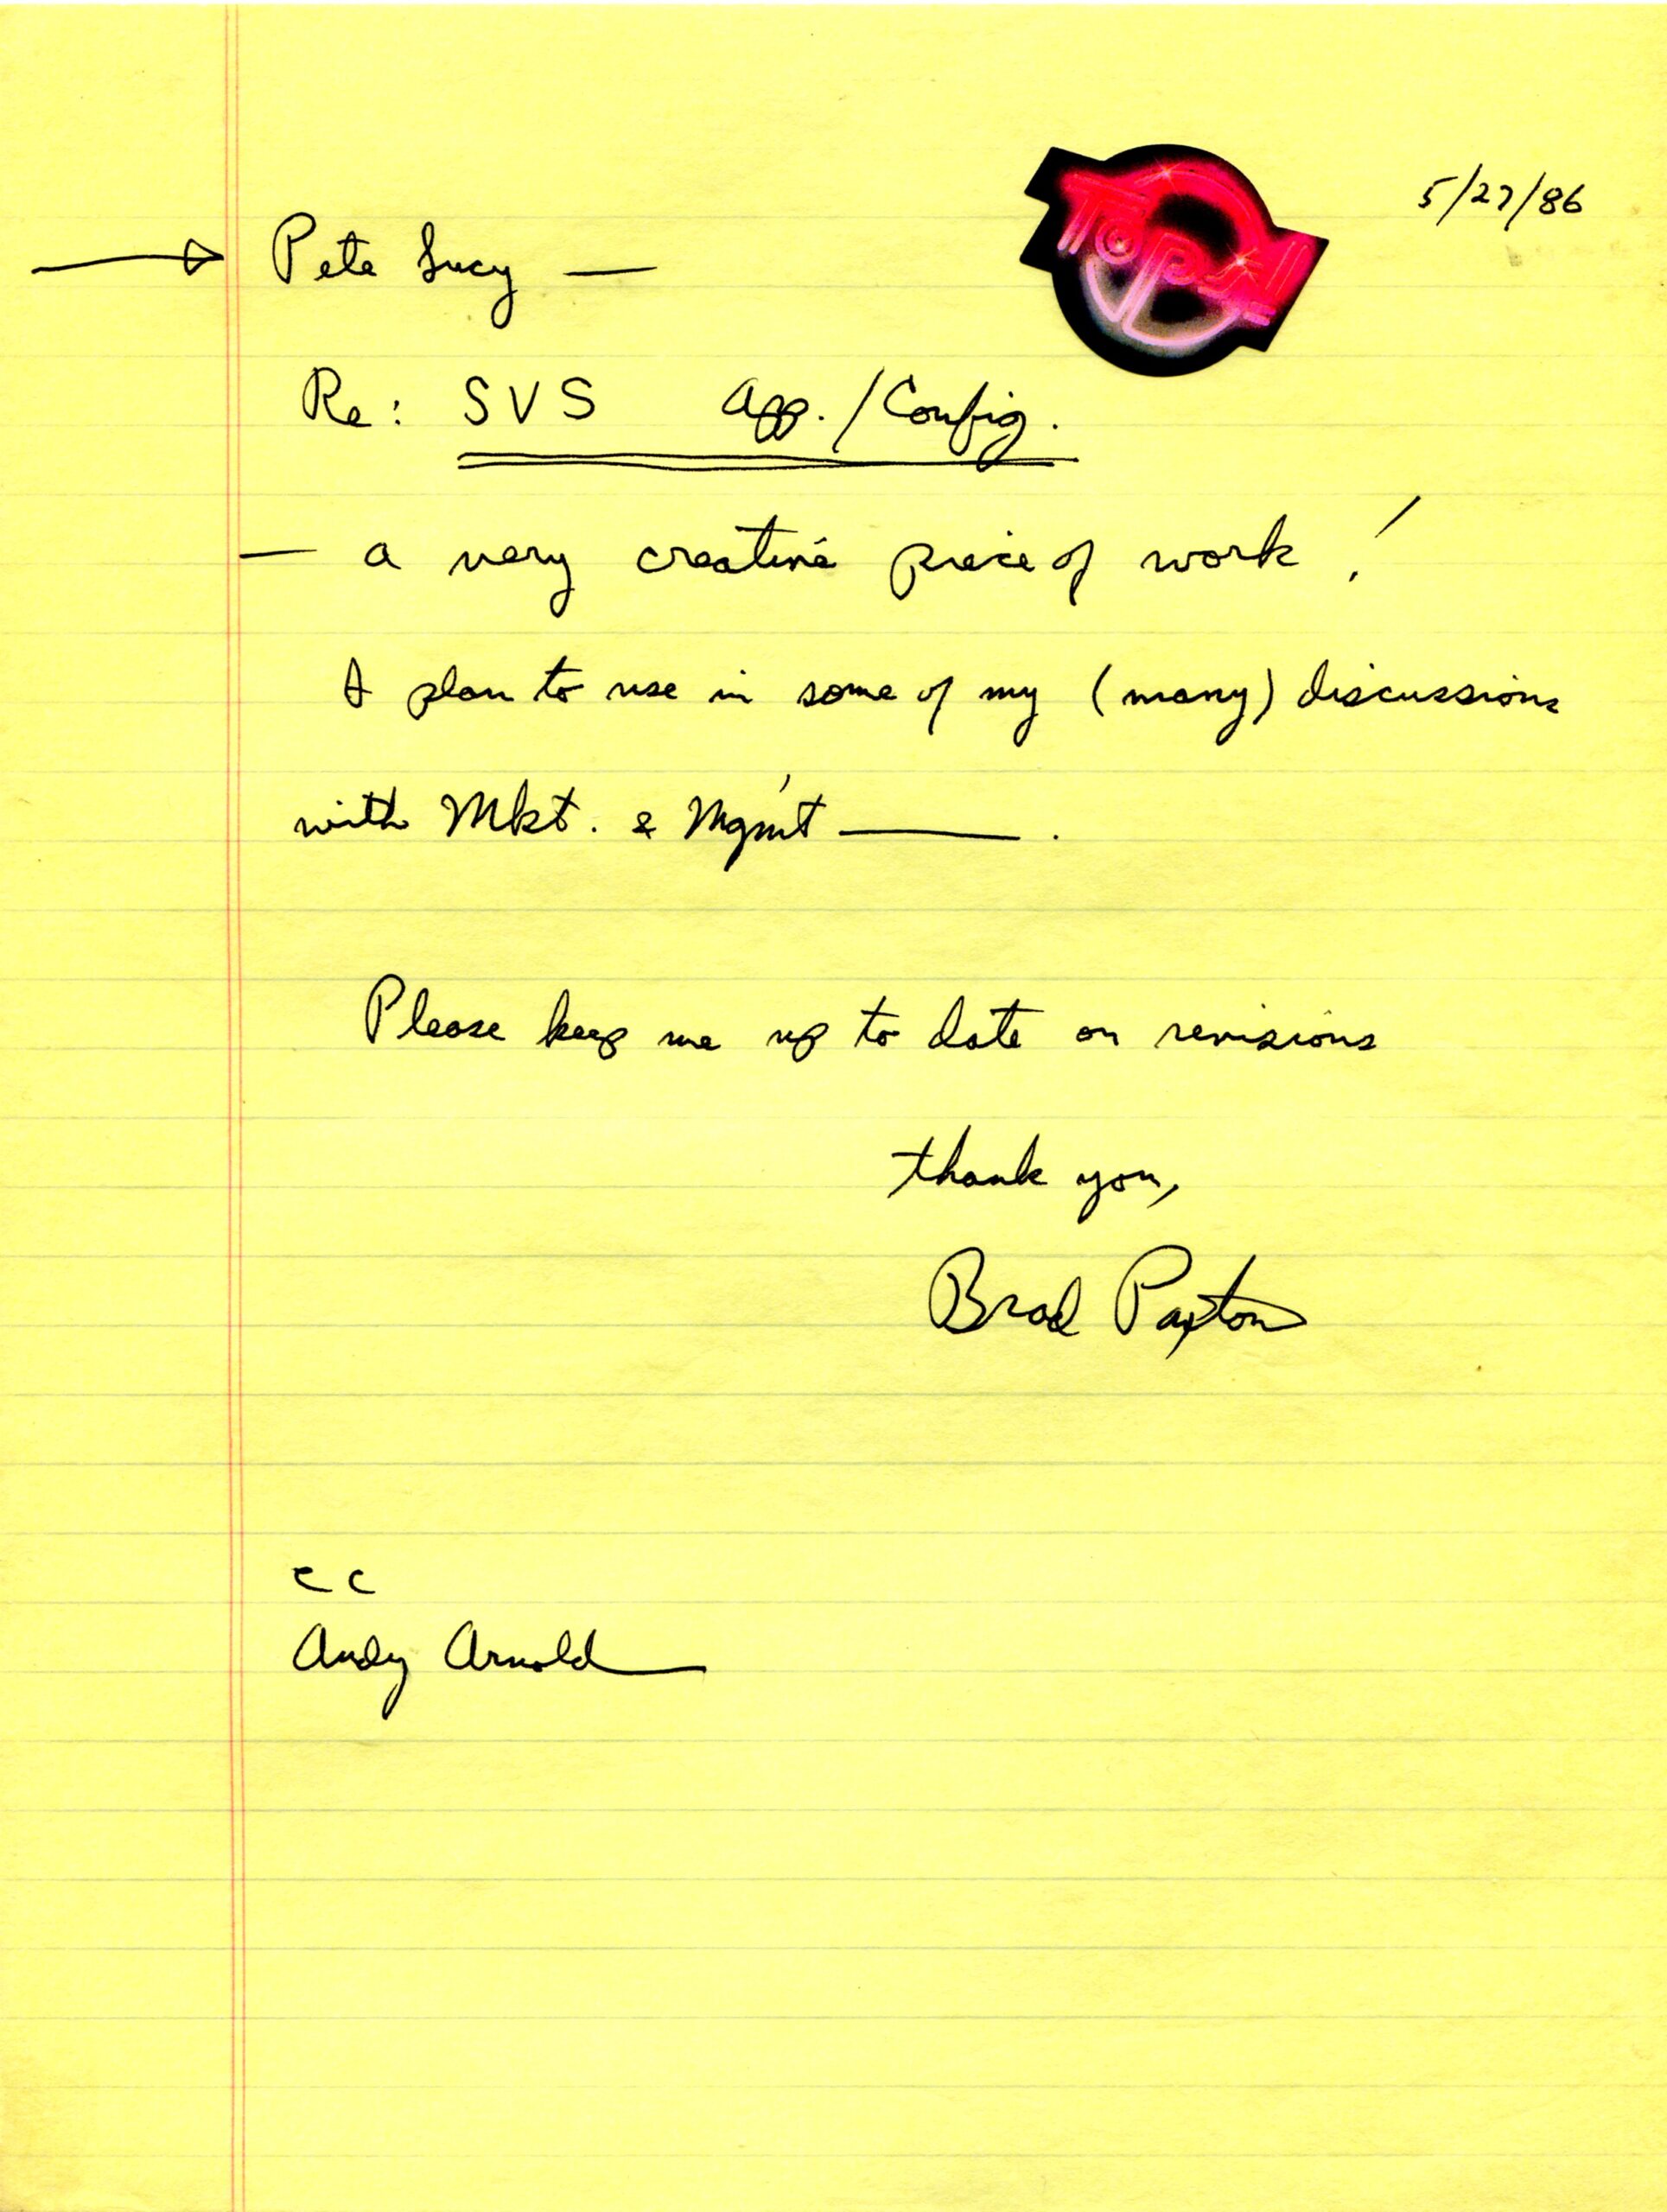 5/27/86
TOPS!
Pete Sucy —
Re: SVS App./Config.
— a very creative piece of work!
I plan to use in some of my (many) discussions
with Mkt. & Mgm't — .
Please keep me up to date on revisions
thank you,
Brad Paxton
cc
Andy Arnold